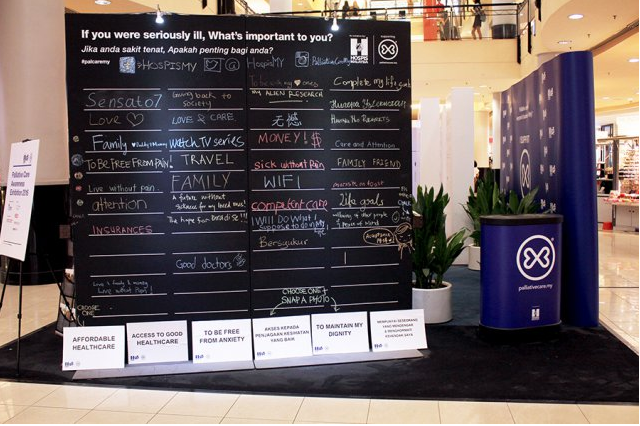 If you were seriously ill, What's important to you?
Jika anda sakit tenat, Apakah penting bagi anda?
#palcaremy
@HOSPISMY
HospisMY
HOSPIS
MALAYSIA
Complete my life goals
Sensato7
Giving back to society
MY ALIEN RESEARCH
LOVE
LOVE & CARE
HAVING NO REGRETS
Family
Watch TV series
MONEY! $
Care and Attention
TO BE FREE FROM PAIN!
TRAVEL
sick without Pain
FAMILY FRIEND
Live without pain
FAMILY
WIFI
attention
A future without
sickness for my loved ones!
competent care
Life goals
INSURANCES
The hope for paradise!!!
I Will Do What I
suppose to do in my
wellbeing of other people
& peace of mind
Acceptance
Good doctors
Bersyukur
Love & family & money
Live without Pain!
CHOOSE
ONE
CHOOSE ONE &
SNAP A PHOTO
AFFORDABLE
HEALTHCARE
ACCESS TO GOOD
HEALTHCARE
TO BE FREE
FROM ANXIETY
AKSES KEPADA
PENJAGAAN KESIHATAN
YANG BAIK
TO MAINTAIN MY
DIGNITY
MEMPUNYAI SESEORANG
YANG MENDENGAR
& MENGHORMATI
Palliative Care
Awareness
Exhibition
palliativecare.my